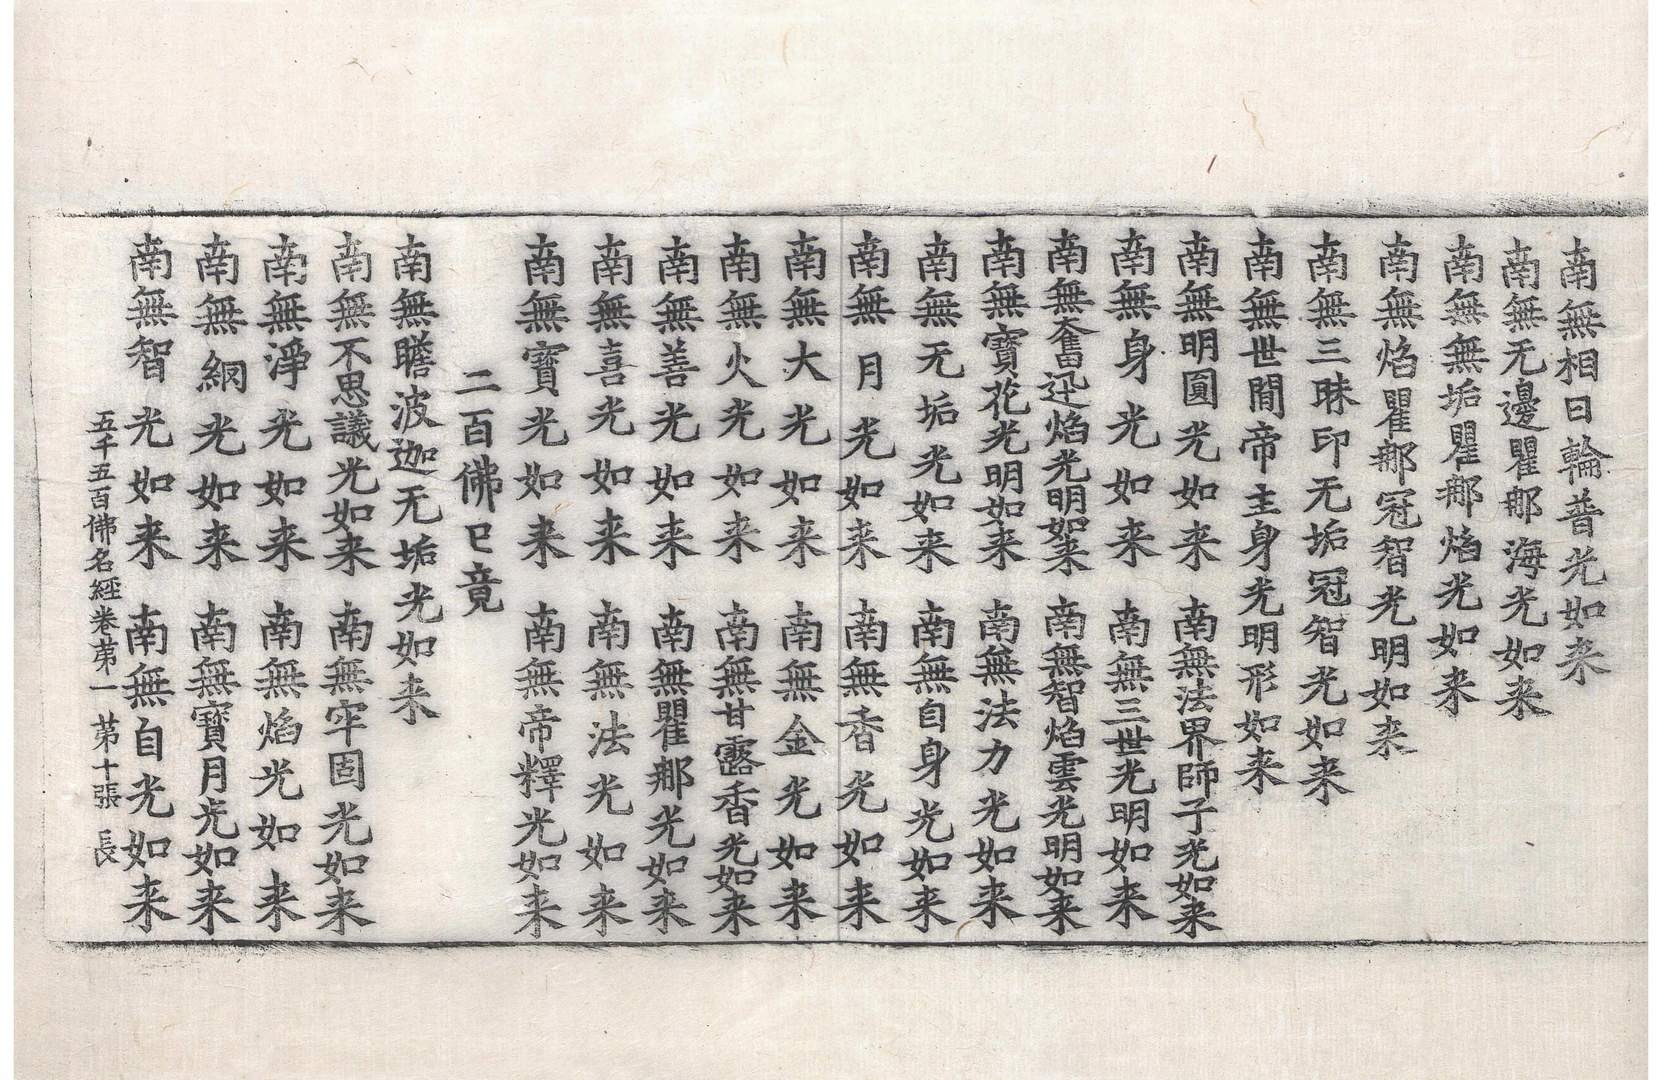 南無相日輪普光如来
南無无邊瞿那海光如来
南無無垢瞿那焰光如来
南無焰瞿那冠智光明如来
南無三昧印无垢冠智光如来
南無世間帝主身光明形如来
南無明圓光如来 南無法界師子光如来
南無身光如来 南無三世光明如来
南無奮迅焰光明如来 南無智焰雲光明如来
南無寶花光明如来 南無法力光如来
南無无垢光如来 南無自身光如来
南無月光如来 南無香光如来
南無大光如来 南無金光如来
南無火光如来 南無甘露香光如来
南無善光如来 南無瞿那光如来
南無喜光如来 南無法光如来
南無寶光如来 南無帝釋光如来
二百佛已竟
南無瞻波迦无垢光如来
南無不思議光如来 南無牢固光如来
南無淨光如来 南無焰光如来
南無網光如来 南無寶月光如来
南無智光如来 南無自光如来
五千五百佛名經卷苐一 苐十張 長